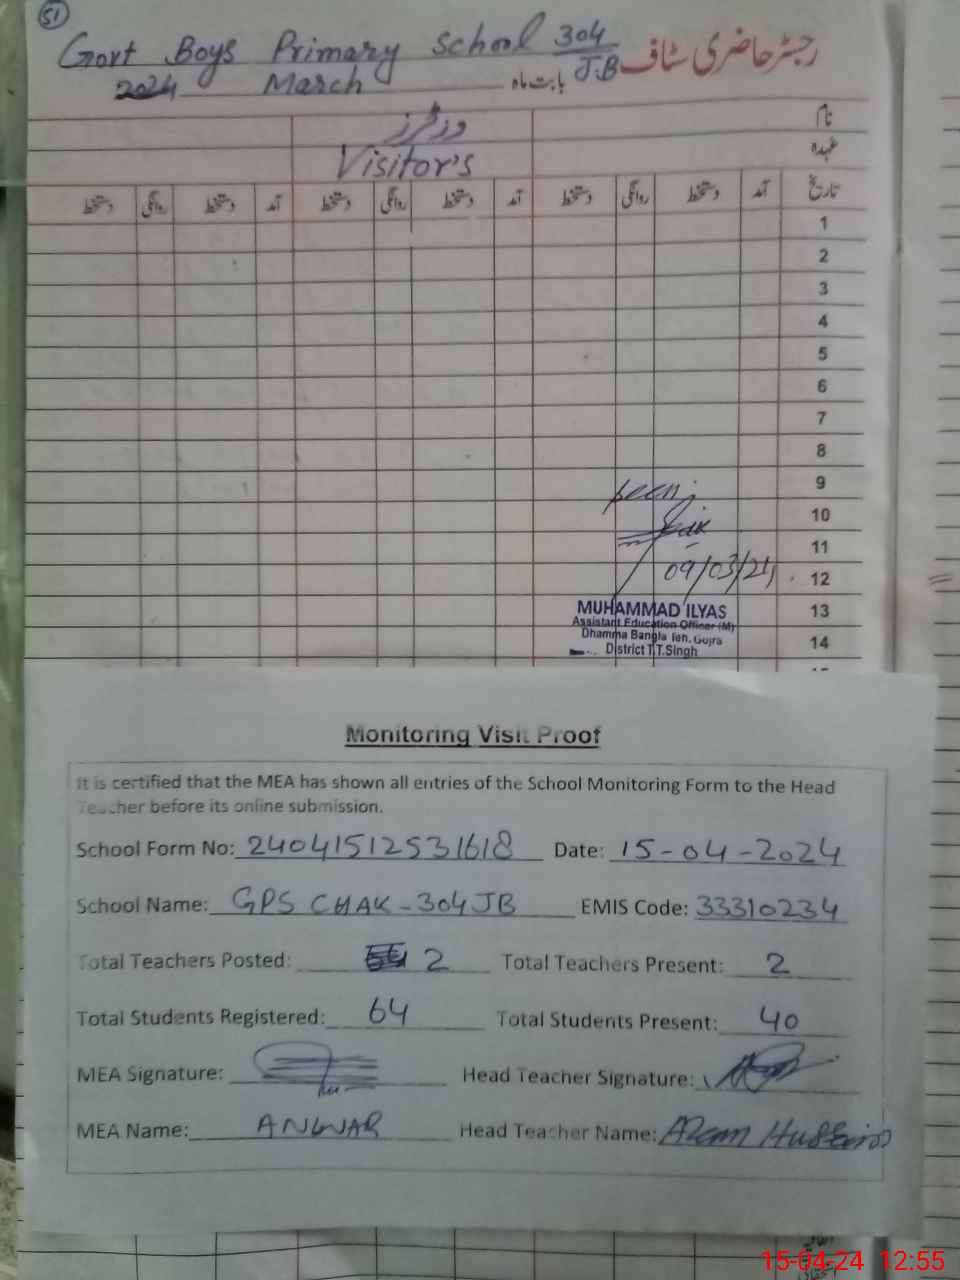 51
Govt Boys Primary School 304/J.B رجسٹر حاضری سٹاف
2024 March بابت ماہ
وزٹرز نام
Visitor's عہدہ
تاریخ آمد دستخط روانگی دستخط آمد دستخط روانگی دستخط آمد دستخط روانگی دستخط
1
2
3
4
5
6
7
8
9
Seen
10
11
09/03/24
12
MUHAMMAD ILYAS 13
Assistant Education Officer (M)
Dhamma Bangla Teh. Gojra 14
District T.T.Singh
Monitoring Visit Proof
It is certified that the MEA has shown all entries of the School Monitoring Form to the Head
Teacher before its online submission.
School Form No: 24041512531618 Date: 15-04-2024
School Name: GPS CHAK-304JB EMIS Code: 33310234
Total Teachers Posted: 2 Total Teachers Present: 2
Total Students Registered: 64 Total Students Present: 40
MEA Signature: Head Teacher Signature:
MEA Name: ANWAR Head Teacher Name: Azam Hussain
15-04-24 12:55